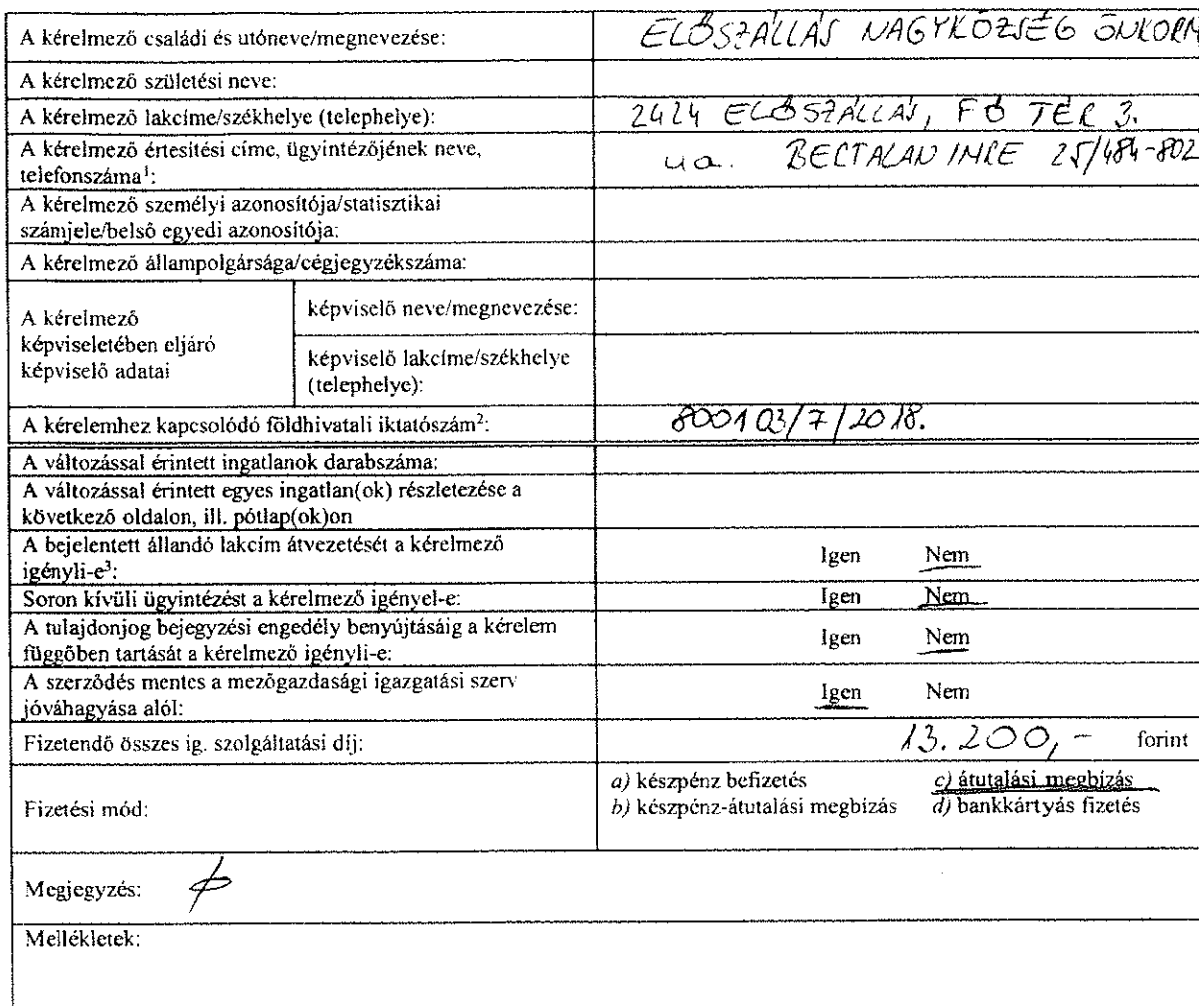 A kérelmező családi és utóneve/megnevezése: ELŐSZÁLLÁS NAGYKÖZSÉG ÖNKORM
A kérelmező születési neve:
A kérelmező lakcíme/székhelye (telephelye): 2424 ELŐSZÁLLÁS, FŐ TÉR 3.
A kérelmező értesítési címe, ügyintézőjének neve,
telefonszáma¹: u.a. BERTALAN IMRE 25/484-802
A kérelmező személyi azonosítója/statisztikai
számjele/belső egyedi azonosítója:
A kérelmező állampolgársága/cégjegyzékszáma:
A kérelmező
képviseletében eljáró
képviselő adatai
képviselő neve/megnevezése:
képviselő lakcíme/székhelye
(telephelye):
A kérelemhez kapcsolódó földhivatali iktatószám²: 800103/7/2018.
A változással érintett ingatlanok darabszáma:
A változással érintett egyes ingatlan(ok) részletezése a
következő oldalon, ill. pótlap(ok)on
A bejelentett állandó lakcím átvezetését a kérelmező
igényli-e³: Igen Nem
Soron kívüli ügyintézést a kérelmező igényel-e: Igen Nem
A tulajdonjog bejegyzési engedély benyújtásáig a kérelem
függőben tartását a kérelmező igényli-e: Igen Nem
A szerződés mentes a mezőgazdasági igazgatási szerv
jóváhagyása alól: Igen Nem
Fizetendő összes ig. szolgáltatási díj: 13.200,- forint
Fizetési mód:
a) készpénz befizetés c) átutalási megbízás
b) készpénz-átutalási megbízás d) bankkártyás fizetés
Megjegyzés:
Mellékletek: